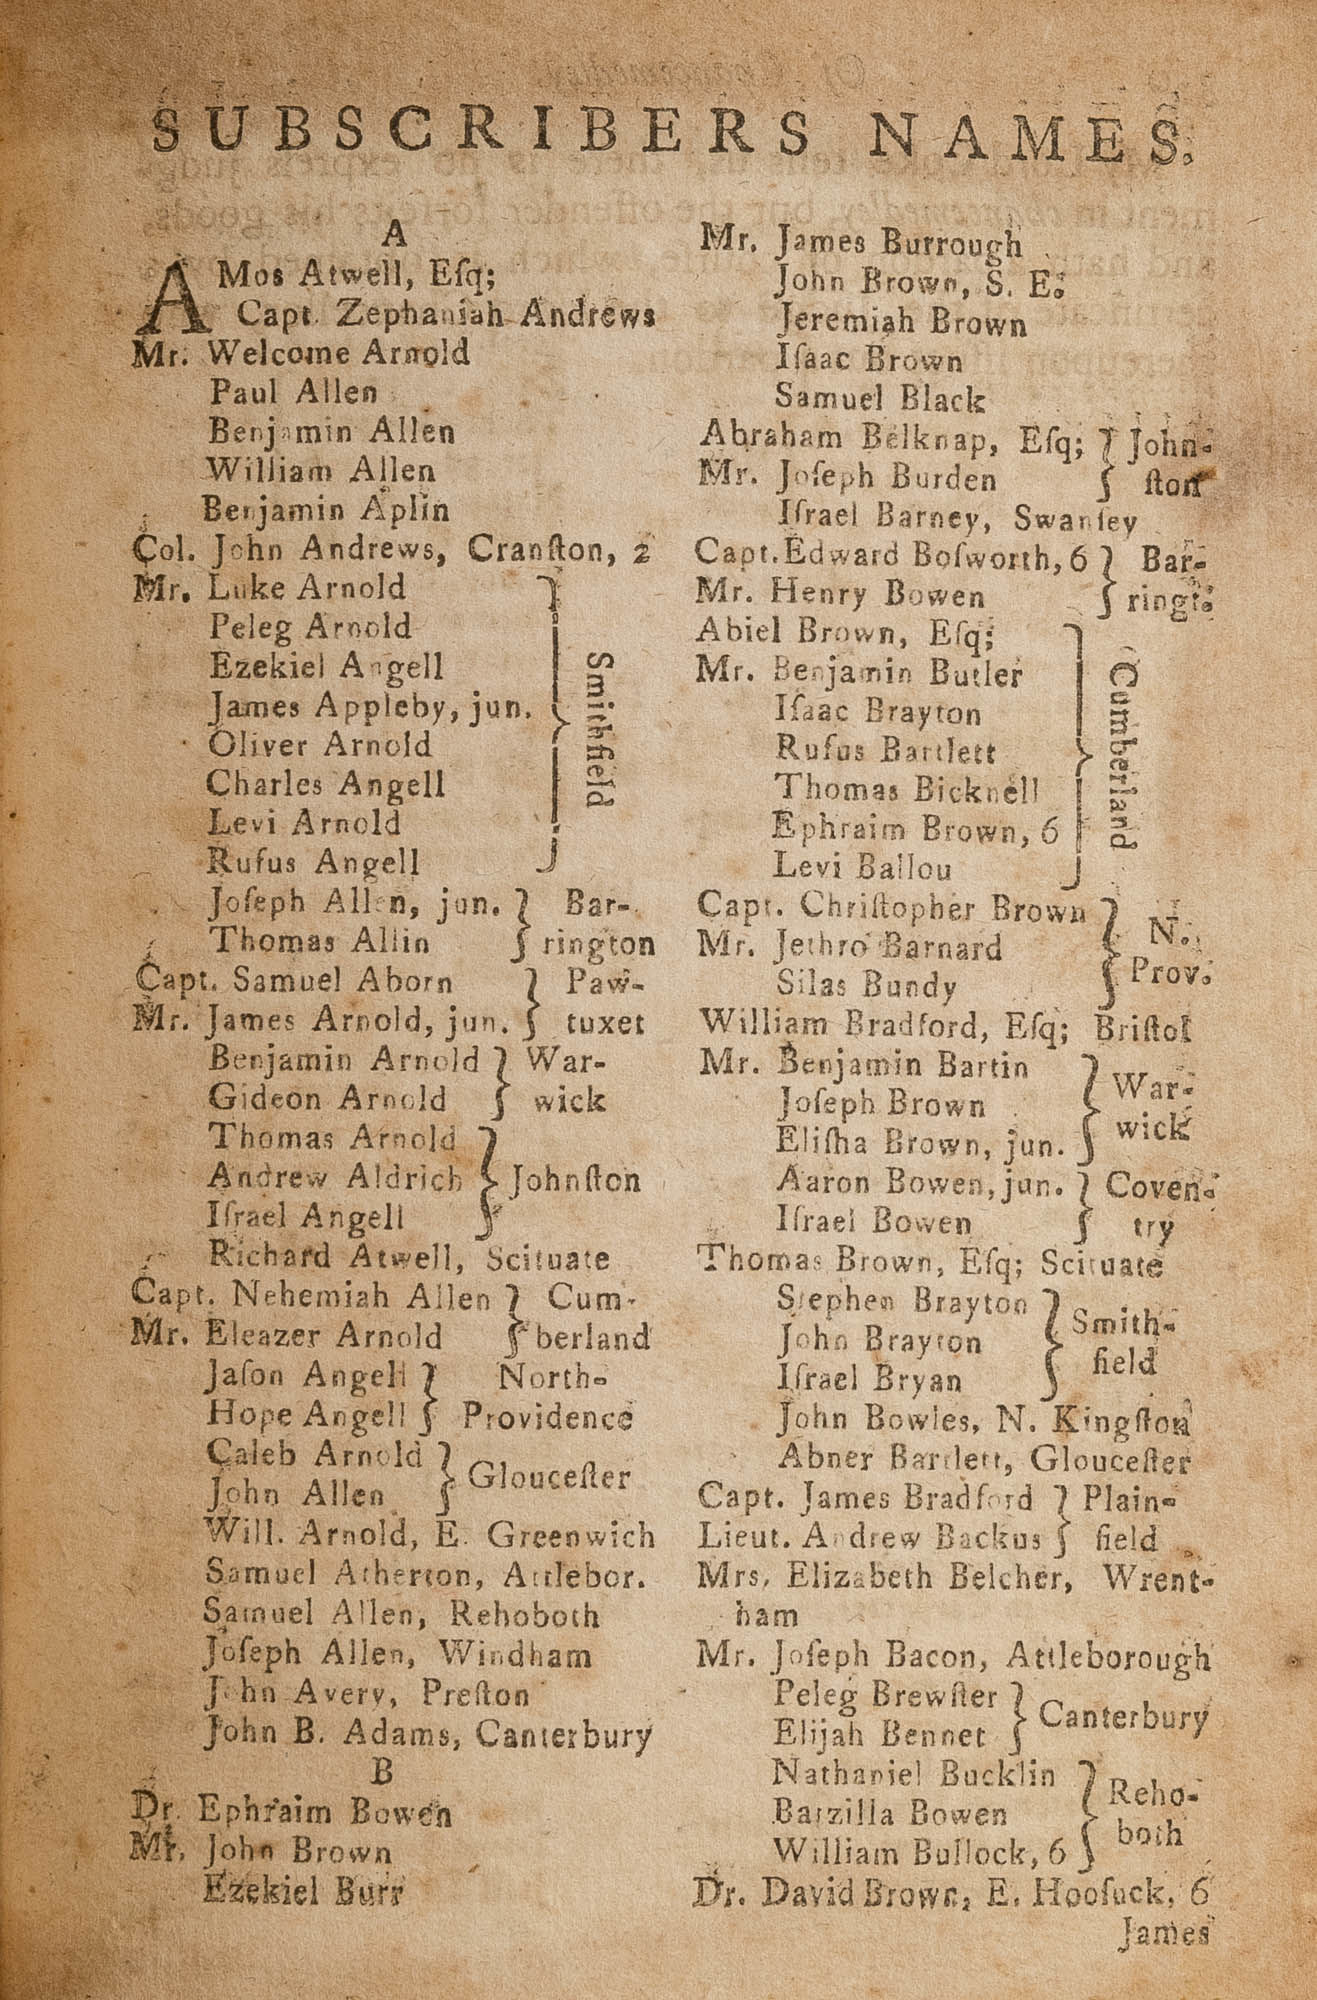 SUBSCRIBERS NAMES.
A
AMos Atwell, Eſq;
Capt. Zephaniah Andrews
Mr. Welcome Arnold
Paul Allen
Benjamin Allen
William Allen
Benjamin Aplin
Col. John Andrews, Cranſton, 2
Mr. Luke Arnold
Peleg Arnold
Ezekiel Angell
James Appleby, jun.
Oliver Arnold
Charles Angell
Levi Arnold
Rufus Angell
Smithfield
Joſeph Allen, jun. } Bar-
Thomas Allin } rington
Capt. Samuel Aborn } Paw-
Mr. James Arnold, jun. } tuxet
Benjamin Arnold } War-
Gideon Arnold } wick
Thomas Arnold
Andrew Aldrich } Johnſton
Iſrael Angell
Richard Atwell, Scituate
Capt. Nehemiah Allen } Cum-
Mr. Eleazer Arnold } berland
Jaſon Angell } North-
Hope Angell } Providence
Caleb Arnold } Glouceſter
John Allen
Will. Arnold, E. Greenwich
Samuel Atherton, Attlebor.
Samuel Allen, Rehoboth
Joſeph Allen, Windham
John Avery, Preſton
John B. Adams, Canterbury
B
Dr. Ephraim Bowen
Mr. John Brown
Ezekiel Burr
Mr. James Burrough
John Brown, S. E.
Jeremiah Brown
Iſaac Brown
Samuel Black
Abraham Belknap, Eſq; } John-
Mr. Joſeph Burden } ſton
Iſrael Barney, Swanſey
Capt. Edward Boſworth, 6 } Bar-
Mr. Henry Bowen } ringt.
Abiel Brown, Eſq;
Mr. Benjamin Butler
Iſaac Brayton
Rufus Bartlett
Thomas Bicknell
Ephraim Brown, 6
Levi Ballou
Cumberland
Capt. Chriſtopher Brown } N.
Mr. Jethro Barnard } Prov.
Silas Bundy
William Bradford, Eſq; Briſtol
Mr. Benjamin Bartin } War-
Joſeph Brown } wick
Eliſha Brown, jun.
Aaron Bowen, jun. } Coven-
Iſrael Bowen } try
Thomas Brown, Eſq; Scituate
Stephen Brayton } Smith-
John Brayton } field
Iſrael Bryan
John Bowles, N. Kingſton
Abner Bartlett, Glouceſter
Capt. James Bradford } Plain-
Lieut. Andrew Backus } field
Mrs. Elizabeth Belcher, Wrent-
ham
Mr. Joſeph Bacon, Attleborough
Peleg Brewſter } Canterbury
Elijah Bennet
Nathaniel Bucklin } Reho-
Barzilla Bowen } both
William Bullock, 6
Dr. David Brown, E. Hooſuck, 6
James